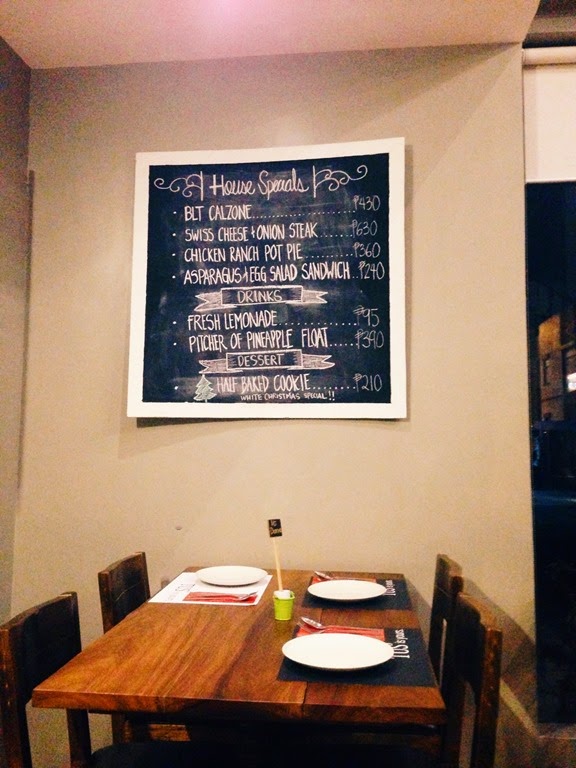 House Specials
• BLT CALZONE....................... ₱430
• SWISS CHEESE & ONION STEAK....... ₱630
• CHICKEN RANCH POT PIE........ ₱360
• ASPARAGUS & EGG SALAD SANDWICH... ₱240
DRINKS
• FRESH LEMONADE............... ₱95
• PITCHER OF PINEAPPLE FLOAT..... ₱390
DESSERT
• HALF BAKED COOKIE......... ₱210
WHITE CHRISTMAS SPECIAL!!
is yours.